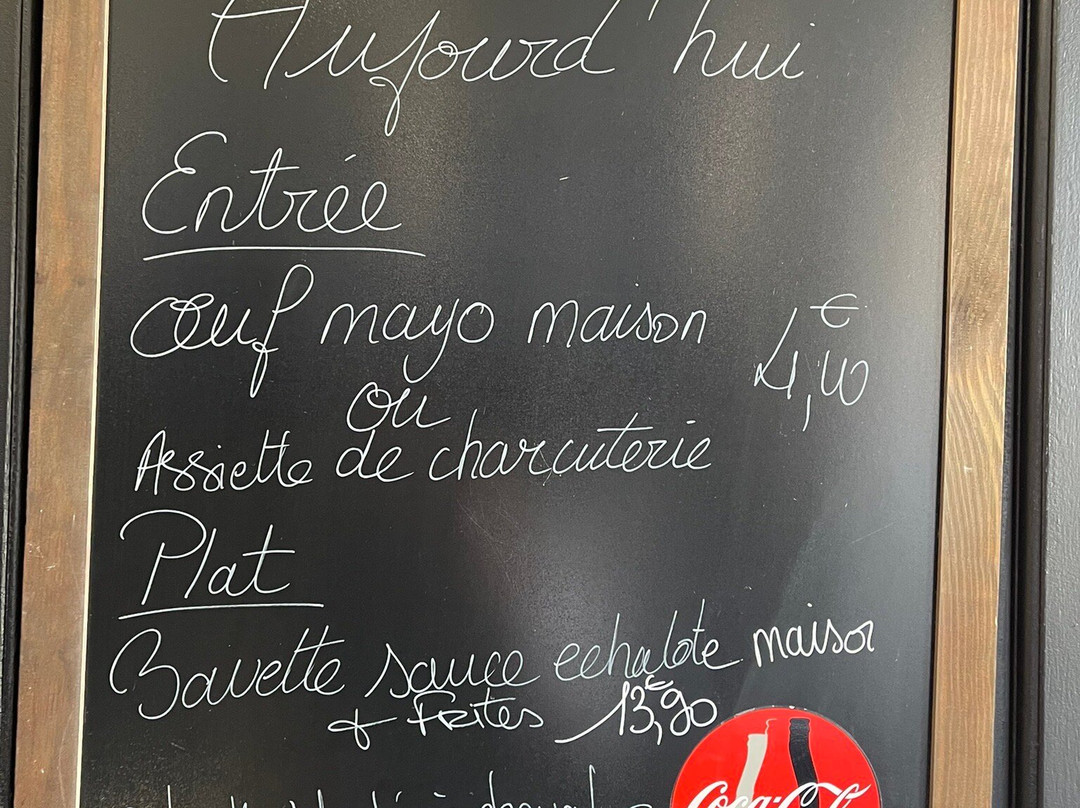 Aujourd'hui
Entrée
Œuf mayo maison
ou
4,€10
Assiette de charcuterie
Plat
Bavette sauce echalote maison
+ Frites 13,€90
Coca-Cola